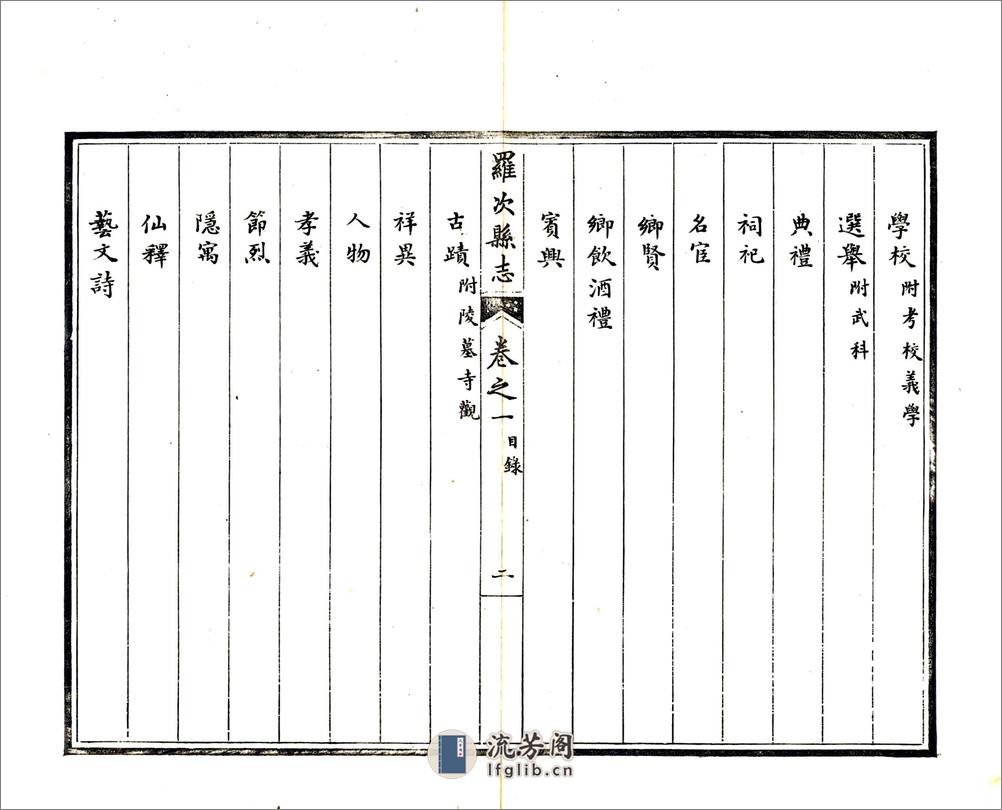 學校附考校義學
選舉附武科
典禮
祠祀
名宦
鄉賢
鄉飲酒禮
賓興
羅次縣志 卷之一 目錄 二
古蹟附陵墓寺觀
祥異
人物
孝義
節烈
隱寓
仙釋
藝文詩
流芳阁
lfglib.cn